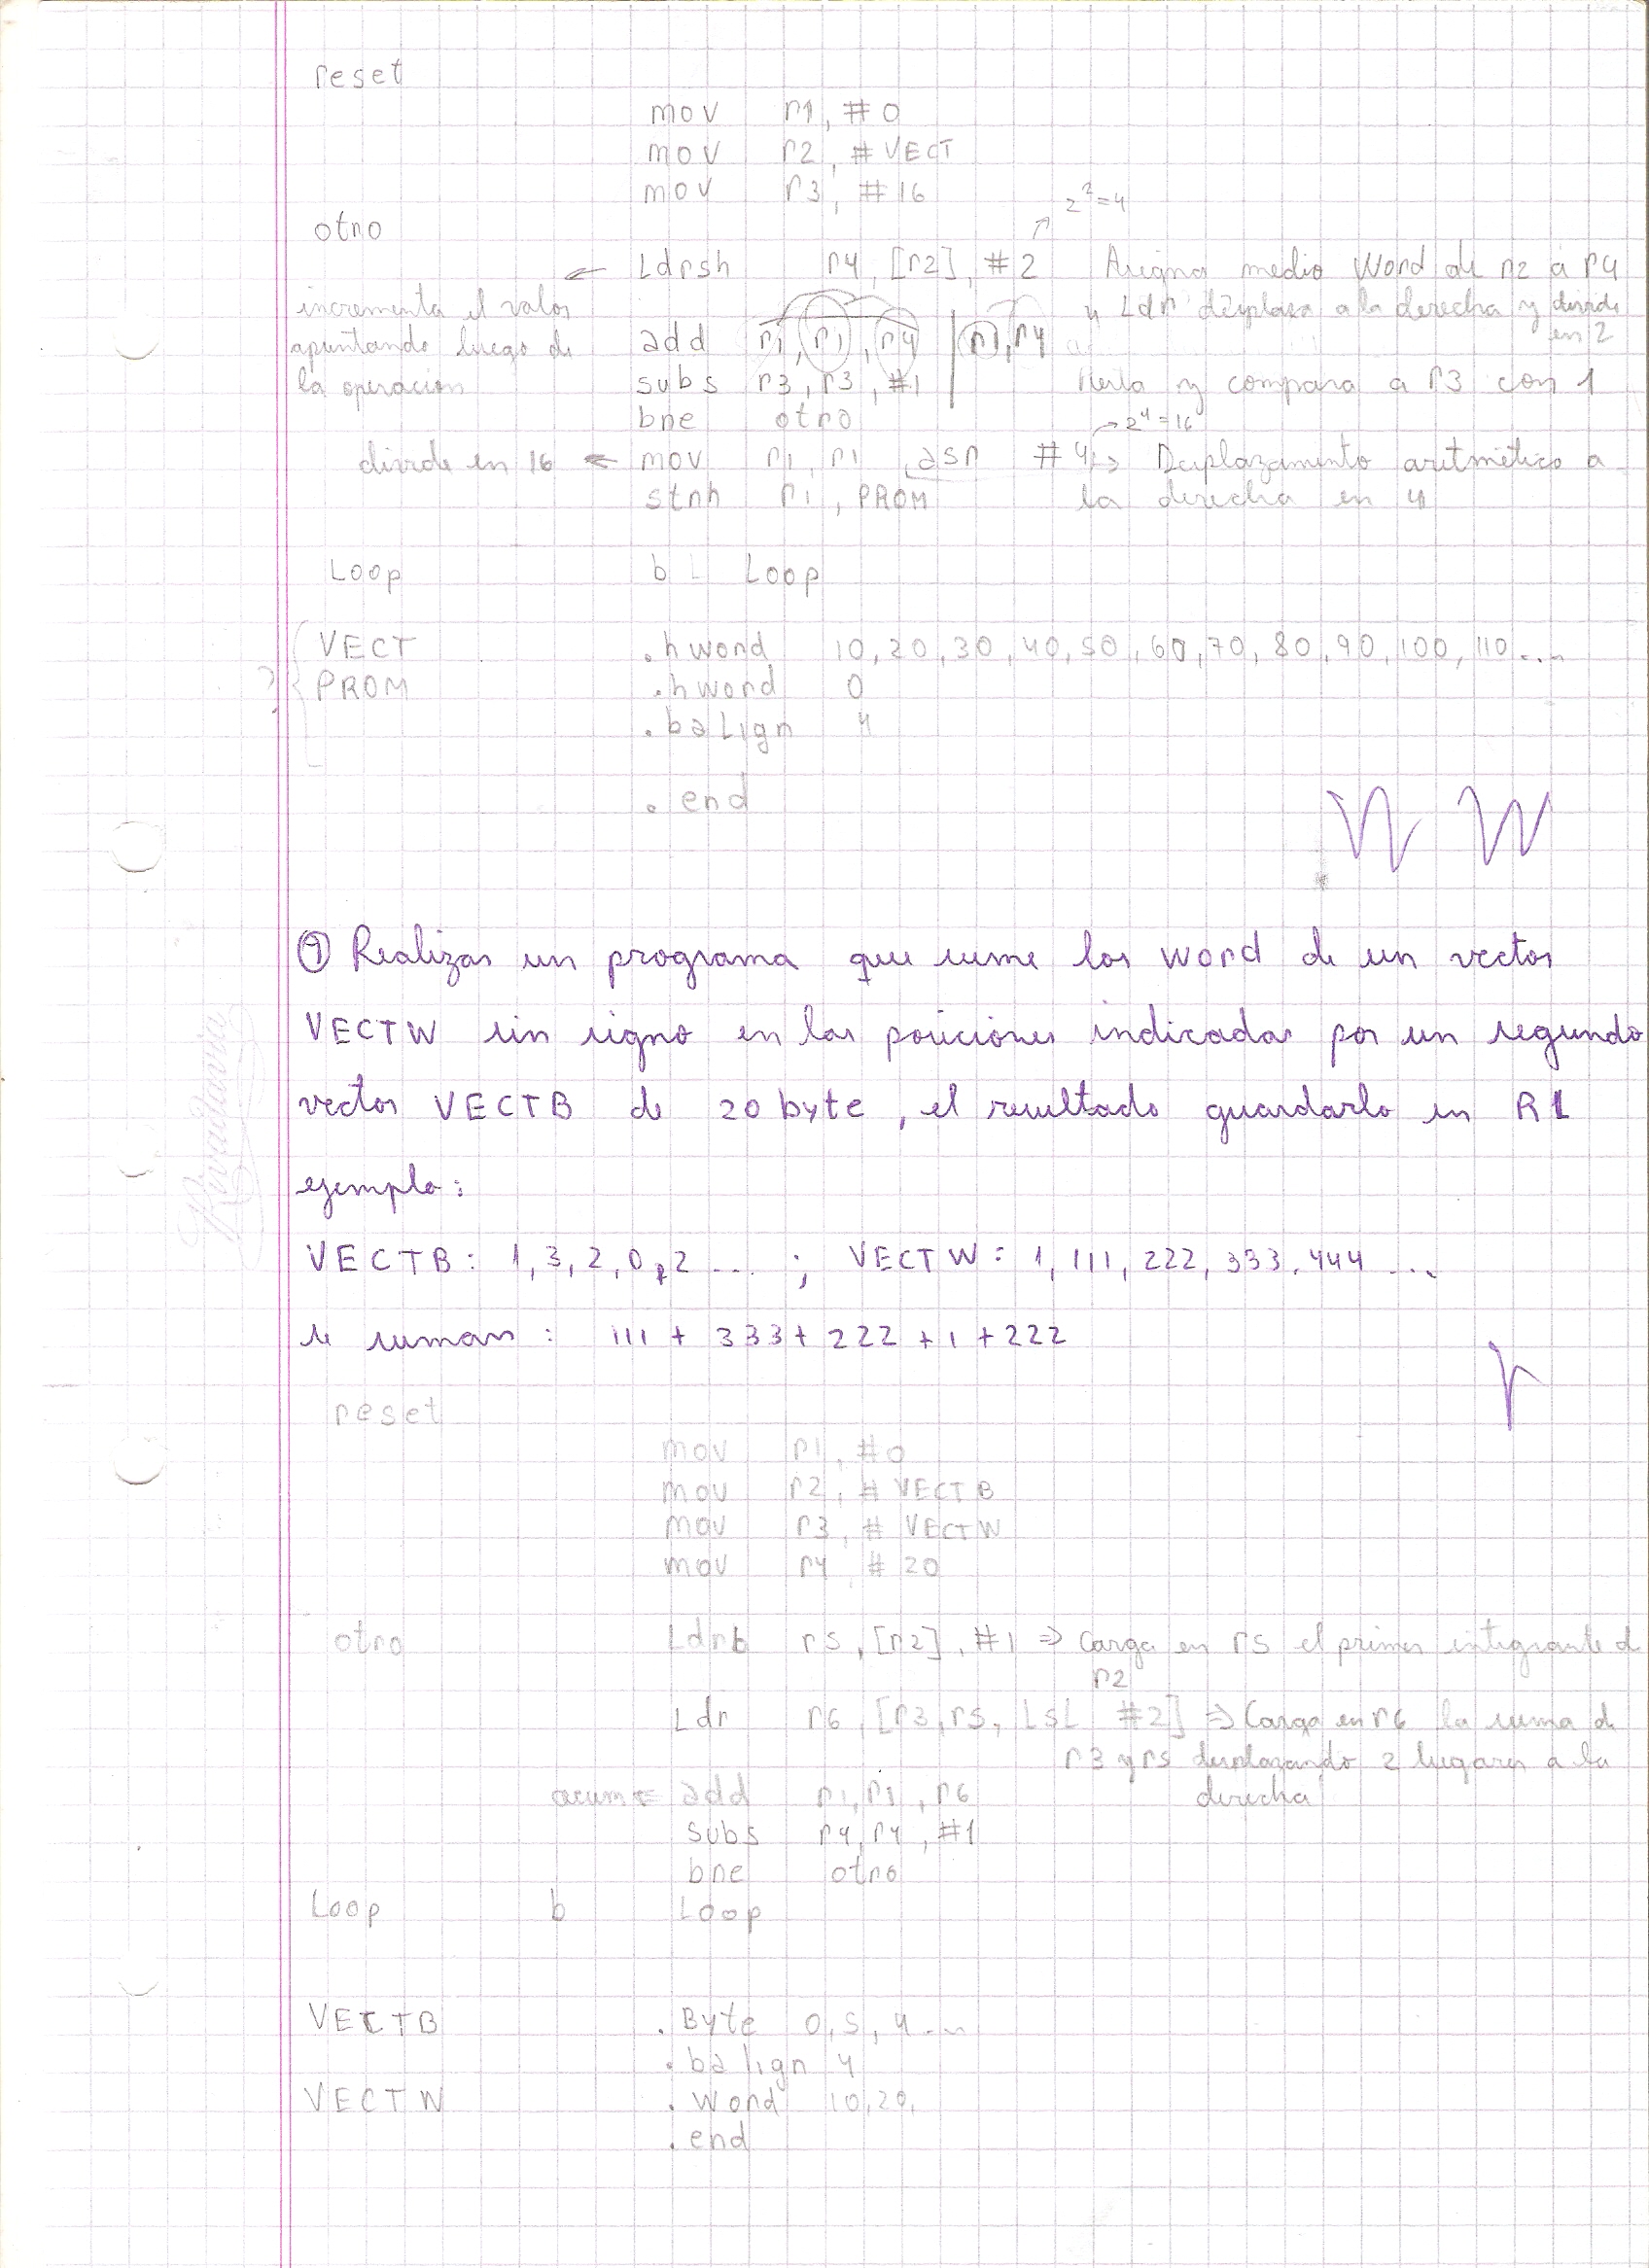 reset
mov r1, #0
mov r2, #VECT
mov r3, #16
2²=4
otro
← Ldrsh r4, [r2], #2 Asigna medio Word de r2 a r4
incrementa el valor
y Ldr desplaza a la derecha y divide en 2
apuntando luego de
add r1, r1, r4 | r1, r4
la operación
subs r3, r3, #1 resta y compara a r3 con 1
bne otro
→ 2⁴=16
divide en 16 ← mov r1 r1, asr #4 => Desplazamento aritmético a
strh r1, PROM la derecha en 4
Loop b Loop
VECT .hword 10, 20, 30, 40, 50, 60, 70, 80, 90, 100, 110...
? PROM .hword 0
.balign 4
.end
① Realizar un programa que sume los word de un vector
VECTW sin signo en las posiciones indicadas por un segundo
vector VECTB de 20 byte, el resultado guardarlo en R1
ejemplo:
VECTB: 1, 3, 2, 0, 2 ... ; VECTW: 1, 111, 222, 333, 444 ...
se suman: 111 + 333 + 222 + 1 + 222
reset
mov r1, #0
mov r2, #VECTB
mov r3, #VECTW
mov r4 #20
otro Ldrb r5, [r2], #1 => Carga en r5 el primer integrante d
r2
Ldr r6 [r3, r5, LSL #2] => Carga en r6 la suma de
r3 y r5 desplazando 2 lugares a la
derecha
acum ← add r1, r1, r6
subs r4, r4, #1
bne otro
Loop b Loop
VECTB .Byte 0, 5, 4...
.balign 4
VECTW .Word 10, 20,
.end
Rivadavia